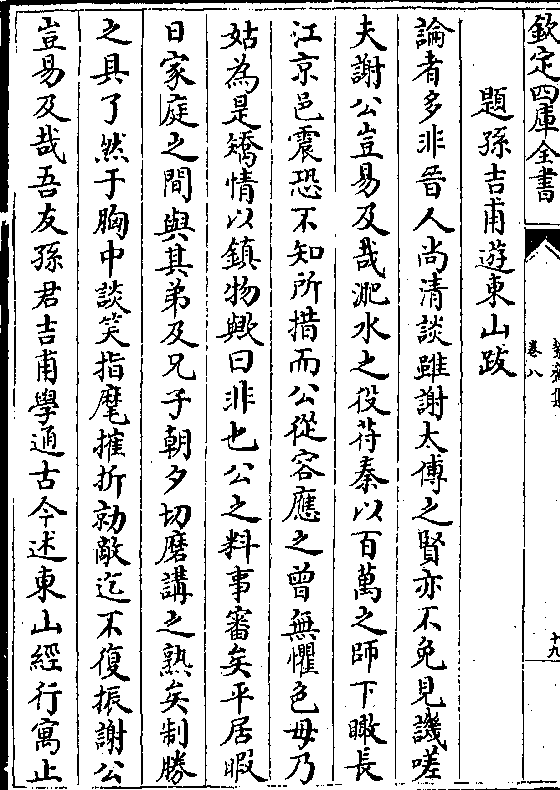 欽定四庫全書
卷八
十九
題孫吉甫遊東山跋
論者多非晉人尚清談雖謝太傅之賢亦不免見譏嗟
夫謝公豈易及哉淝水之役苻秦以百萬之師下瞰長
江京邑震恐不知所措而公從容應之曾無懼色毋乃
姑為是矯情以鎮物歟曰非也公之料事審矣平居暇
日家庭之間與其弟及兄子朝夕切磨講之熟矣制勝
之具了然于胸中談笑指麾摧折勍敵迄不復振謝公
豈易及哉吾友孫君吉甫學通古今述東山經行寓止